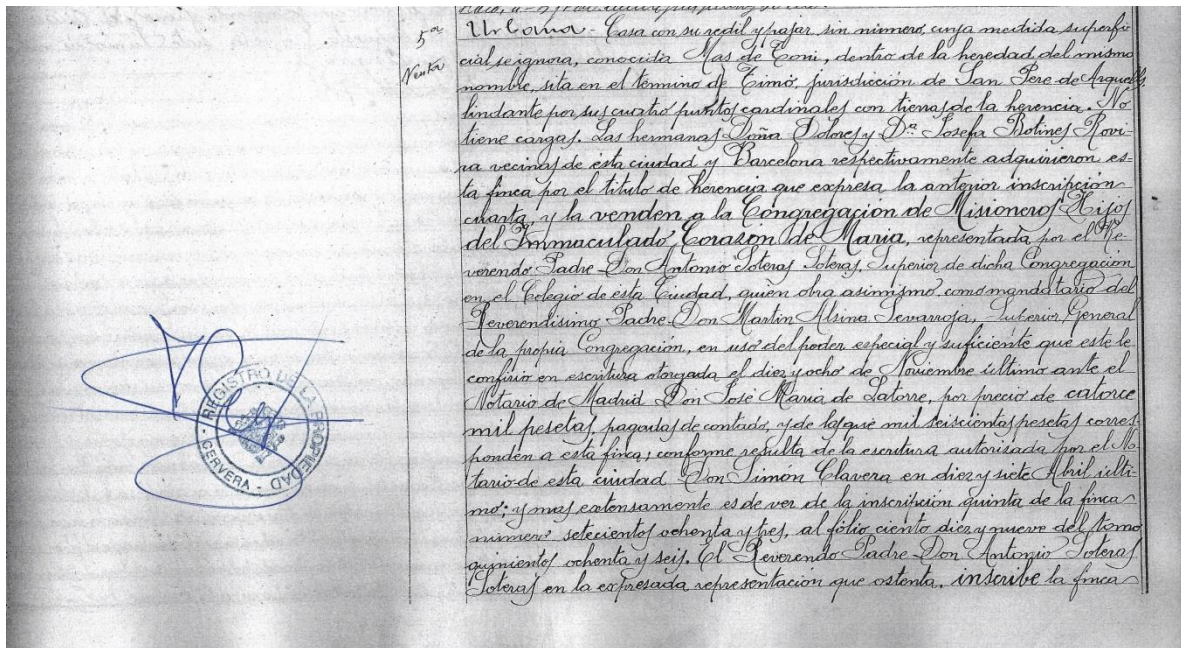 5ª
Venta
Urbana - Casa con su redil y pajar, sin número, cuya medida superfi-
cial se ignora, conocida Mas de Toni, dentro de la heredad del mismo
nombre, sita en el término de Timó, jurisdicción de San Pere de Arquells,
lindante por sus cuatro puntos cardinales con tierras de la herencia. No
tiene cargas. Las hermanas Doña Dolores y Dª Josefa Botines Rovi-
ra vecinas de esta ciudad y Barcelona respectivamente adquirieron es-
ta finca por el titulo de herencia que expresa la anterior inscripción
cuarta, y la venden a la Congregación de Misioneros Hijos
del Immaculado Corazón de Maria, representada por el Re-
verendo Padre Don Antonio Soteras Soteras, Superior de dicha Congregación
en el Colegio de esta Ciudad, quien obra asimismo como mandatario del
Reverendisimo Padre Don Martin Alsina Sevarroja, Superior General
de la propia Congregación, en uso del poder especial y suficiente que este le
confirio en escritura otorgada el diez y ocho de Noviembre último ante el
Notario de Madrid Don José Maria de Latorre, por precio de catorce
mil pesetas, pagadas de contado, y de las que mil seiscientas pesetas corres-
ponden a esta finca; conforme resulta de la escritura autorisada por el No-
tario de esta ciudad Don Simón Clavera en diez y siete Abril últi-
mo; y mas extensamente es de ver de la inscripción quinta de la finca
número setecientos ochenta y tres, al fólio ciento diez y nueve del tomo
quinientos ochenta y seis. El Reverendo Padre Don Antonio Soteras
Soteras en la expresada representación que ostenta, inscribe la finca
REGISTRO DE LA PROPIEDAD
- CERVERA -